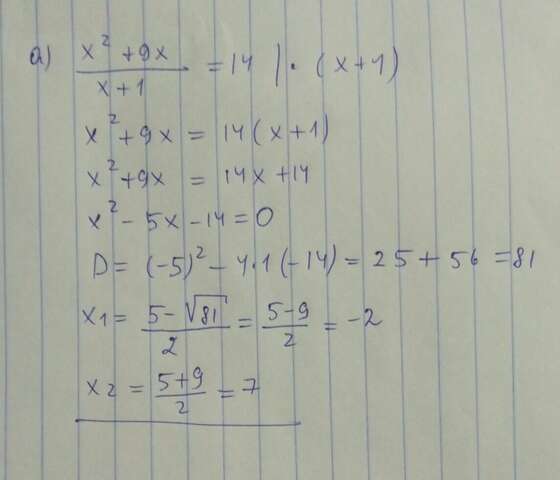 a) (x² + 9x)/(x + 1) = 14 | · (x + 1)
x² + 9x = 14(x + 1)
x² + 9x = 14x + 14
x² - 5x - 14 = 0
D = (-5)² - 4·1(-14) = 25 + 56 = 81
x1 = (5 - √81)/2 = (5 - 9)/2 = -2
x2 = (5 + 9)/2 = 7